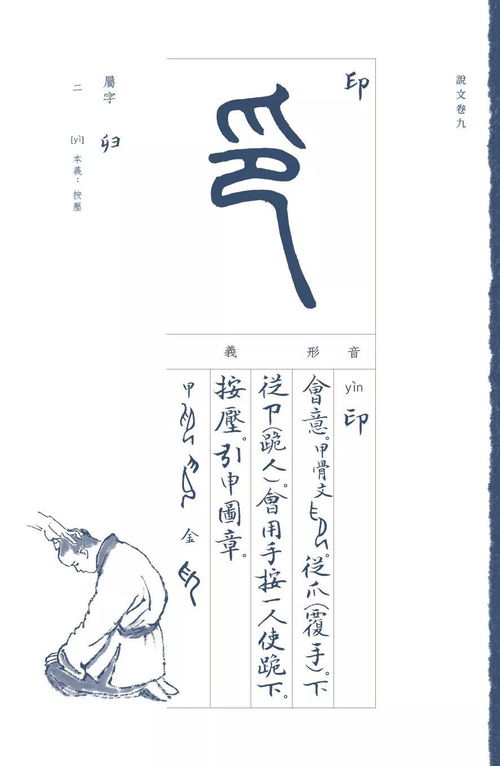 說文卷九
印
音
yìn
印
形
會意。甲骨文。從爪(覆手)。下
從卩(跪人)。會用手按一人使跪下。
義
按壓。引申圖章。
甲
金
屬字
二
[yì] 本義：按壓